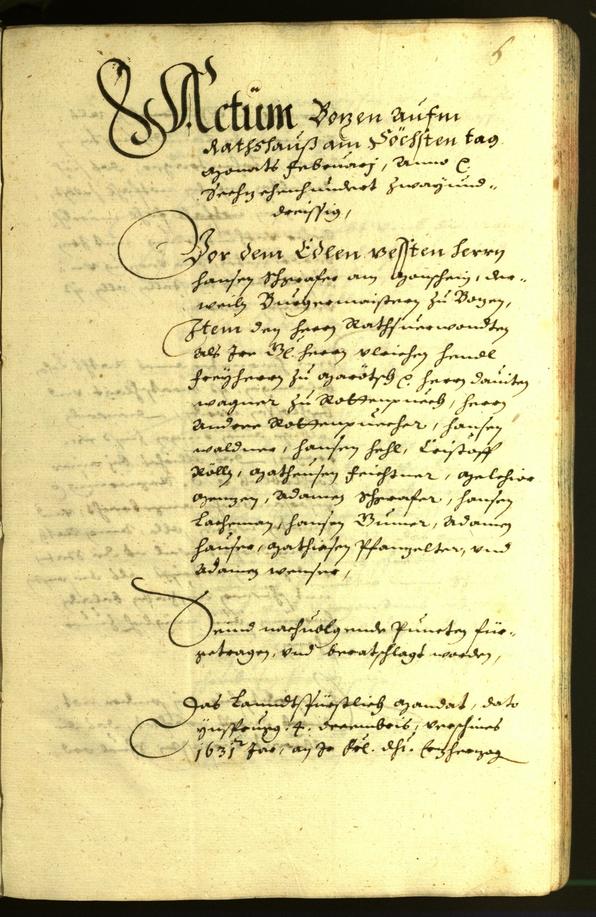 6
Actum Botzen aufm
Rathshauß am Söchsten tag
Monats Februarj, Anno &c.
Sechzehenhundert zwayund-
dreissig,
Vor dem Edlen vessten herrn
hansen Schrafer am Monschein, der-
weiln Burgermaistern zu Botzen,
Item den herrn Rathsuerwondten
als Ire Gl. herrn vlrichen hendl
freyherrn zu Marötsch &c. herrn dauiten
wagner zu Rottenpuech, herrn
Andree Rottenpuecher, hansen
waldner, hansen hehl, Cristoff
Rölln, Matheusen Feichtner, Melchior
Menzen, Adamen Schrafer, hansen
Lacheman, hansen Gumer, Adamen
hauser, Mathiesen Pfanzelter, vnd
Adamen wenser,
Seind nachuolgende Puncten für-
getragen, vnd beratschlagt worden,
Das Lanndtsfürstlich Mandat, dato
ynsprugg 4. decembris, verschines
1631 Jar, an Ir Frl. dhl. Erzherzog